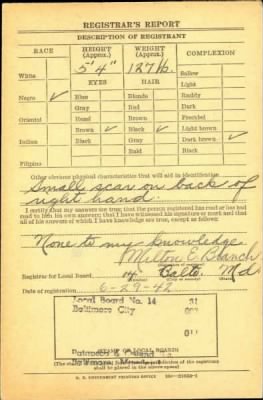 REGISTRAR'S REPORT
DESCRIPTION OF REGISTRANT
RACE HEIGHT (Approx.) WEIGHT (Approx.) COMPLEXION
5'4" 127 lb.
White EYES HAIR Sallow
Light
Negro ✓ Blue Blonde Ruddy
Gray Red Dark
Oriental Hazel Brown Freckled
Brown ✓ Black ✓ Light brown
Indian Black Gray Dark brown ✓
Bald Black
Filipino
Other obvious physical characteristics that will aid in identification
Small scar on back of
right hand.
I certify that my answers are true; that the person registered has read or has had
read to him his own answers; that I have witnessed his signature or mark and that
all of his answers of which I have knowledge are true, except as follows:
None to my knowledge
Milton E. Branch
Registrar for Local Board 14 Balto. Md.
Date of registration 6-29-42
Local Board No. 14 31
Baltimore City
(STAMP OF LOCAL BOARD)
Baltimore, Maryland
shall be placed in the above space)
U. S. GOVERNMENT PRINTING OFFICE